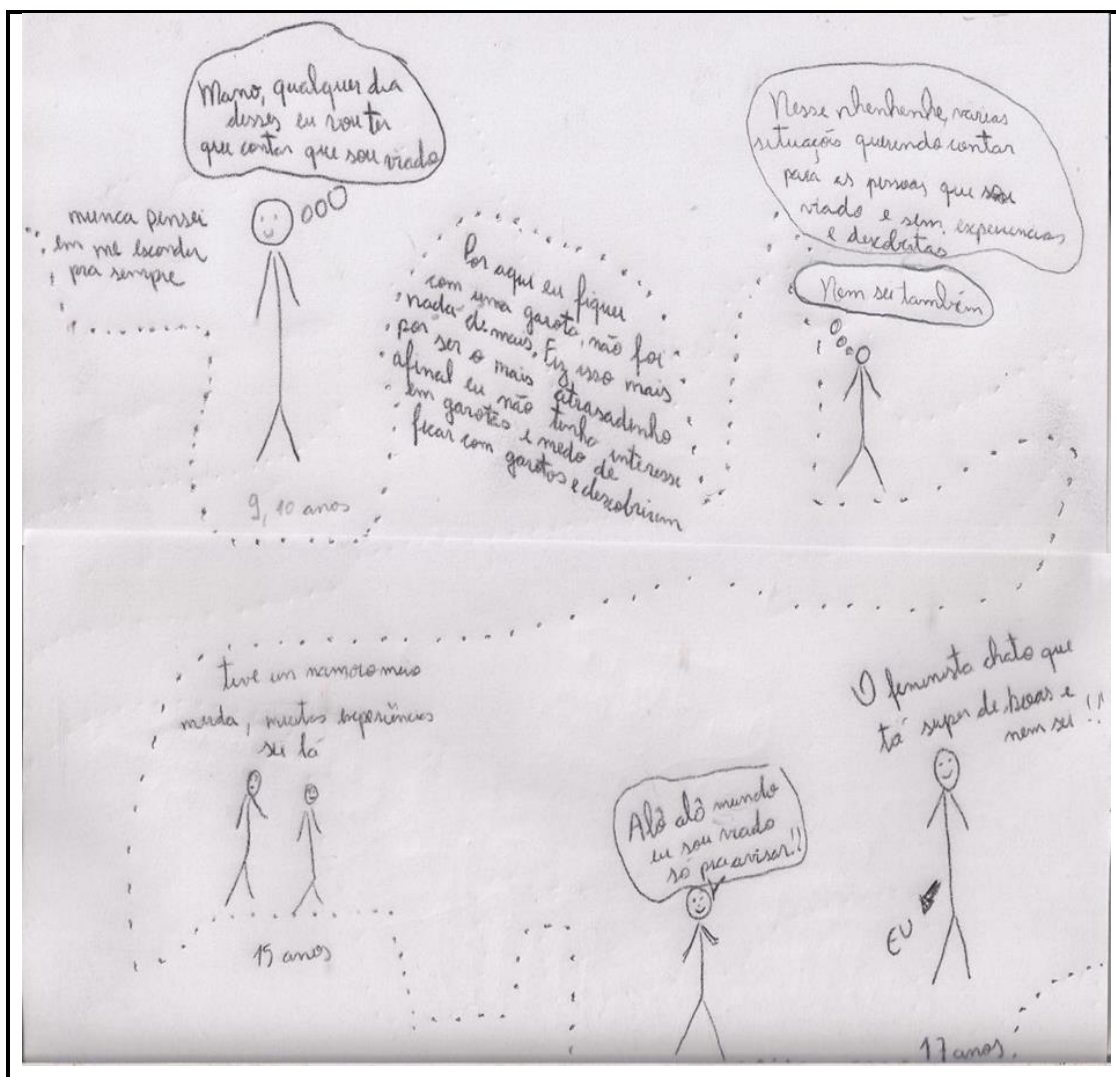 Mano, qualquer dia
desses eu vou ter
que contar que sou viado
nunca pensei
em me esconder
pra sempre
9, 10 anos
Por aqui eu fiquei
com uma garota, não foi
nada demais. Fiz isso mais
por ser o mais atrasadinho
afinal eu não tinha interesse
em garotas e medo de
ficar com garotos e descobrirem
Nesse nhenhenhe, varias
situação querendo contar
para as pessoas que sou
viado e sem experiencias
e descobertas
Nem sei também
tive um namoro meio
merda, muitas experiências
sei lá
15 anos
Alô alô mundo
eu sou viado
só pra avisar!!
O feminista chato que
tá super de boas e
nem sei!!
EU
17 anos.